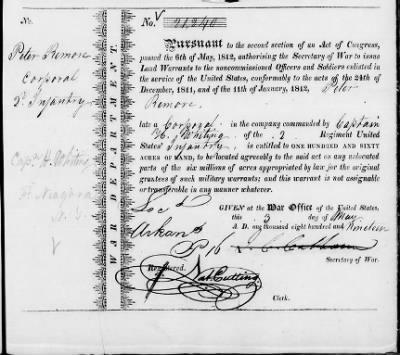 No.
Peter Remore
Corporal
2d Infantry
Capt. H. Whiting
Ft. Niagara
N. Y.
V
WAR DEPARTMENT.
No. V 24240
Pursuant to the second section of an Act of Congress,
passed the 6th of May, 1812, authorising the Secretary of War to issue
Land Warrants to the noncommissioned Officers and Soldiers enlisted in
the service of the United States, conformably to the acts of the 24th of
December, 1811, and of the 11th of January, 1812, Peter
Remore
late a Corporal in the company commanded by Captain
H. Whiting of the 2 Regiment United
States' Infantry, is entitled to ONE HUNDRED AND SIXTY
ACRES OF LAND, to be located agreeably to the said act on any unlocated
part of the six millions of acres appropriated by law for the original
grantees of such military warrants; and this warrant is not assignable
or transferable in any manner whatever.
GIVEN at the War Office of the United States,
Loc'd
this 3 day of May
A. D. one thousand eight hundred and Nineteen
Arkans
J. C. Calhoun
Secretary of War.
Registered.
Nat Cutting
Clerk.